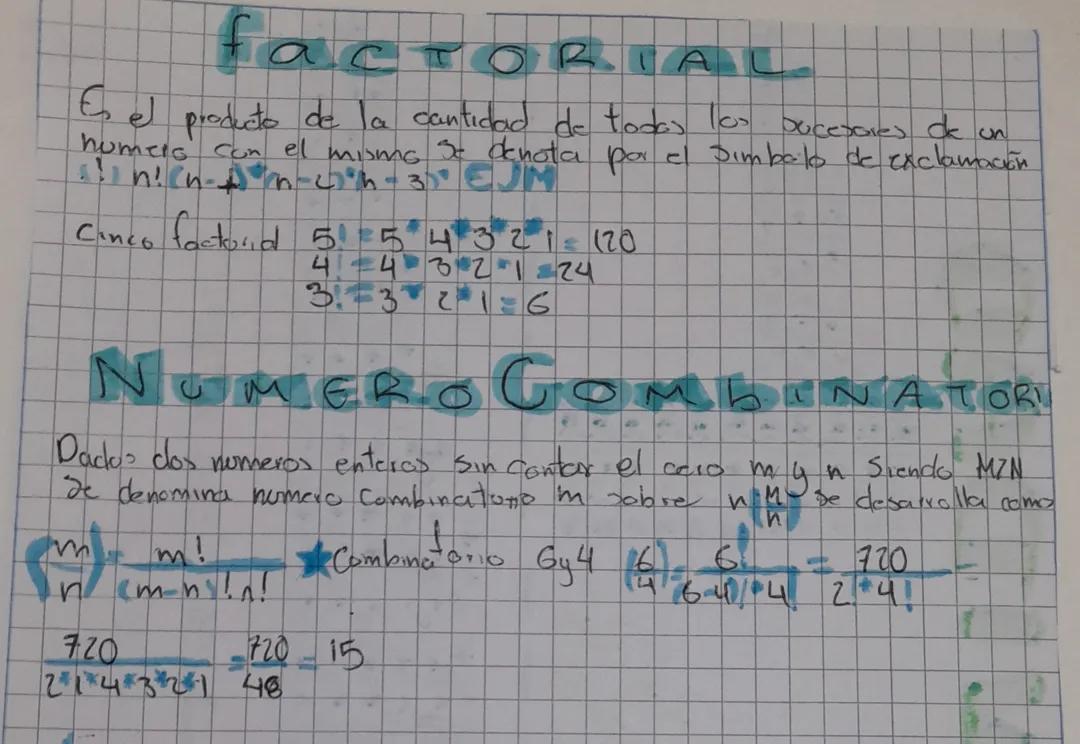 FACTORIAL
Es el producto de la cantidad de todos los sucesores de un
numero con el mismo se denota por el simbolo de exclamación
"!" n!(n-1)*(n-2)*(n-3)* EJM
Cinco factorial 5! = 5*4*3*2*1 = 120
4! = 4*3*2*1 = 24
3! = 3*2*1 = 6
NUMERO COMbINATORI
Dados dos numeros enteros sin contar el cero m y n siendo M≥N
se denomina numero combinatorio m sobre n (M/n) se desarrolla como
(m/n) = m!/(m-n)!n! ★Combinatorio 6y4 (6/4) = 6!/(6-4)!*4! = 720/2!*4! =
720/2*1*4*3*2*1 = 720/48 = 15